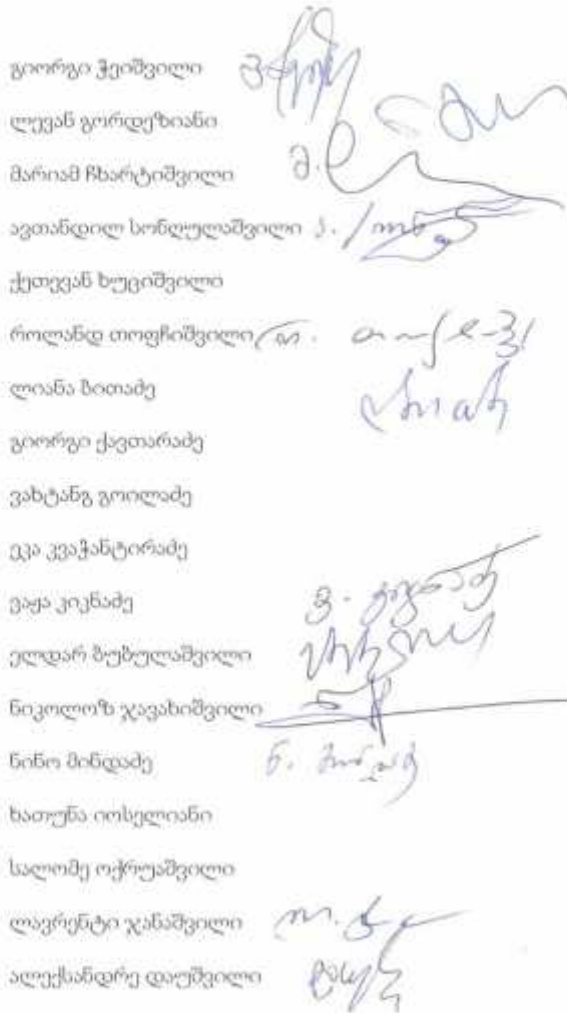 გიორგი ჭეიშვილი
ლევან გორდეზიანი
მარიამ ჩხარტიშვილი
ავთანდილ სონღულაშვილი ა.
ქეთევან ხუციშვილი
როლანდ თოფჩიშვილი რ.
ლიანა ბითაძე
გიორგი ქავთარაძე
ვახტანგ გოილაძე
ეკა კვაჭანტირაძე
ვაჟა კიკნაძე ვ. კიკნაძე
ელდარ ბუბულაშვილი
ნიკოლოზ ჯავახიშვილი
ნინო მინდაძე ნ. მინდაძე
ხათუნა იოსელიანი
სალომე ოქრუაშვილი
ლავრენტი ჯანაშვილი
ალექსანდრე დაუშვილი